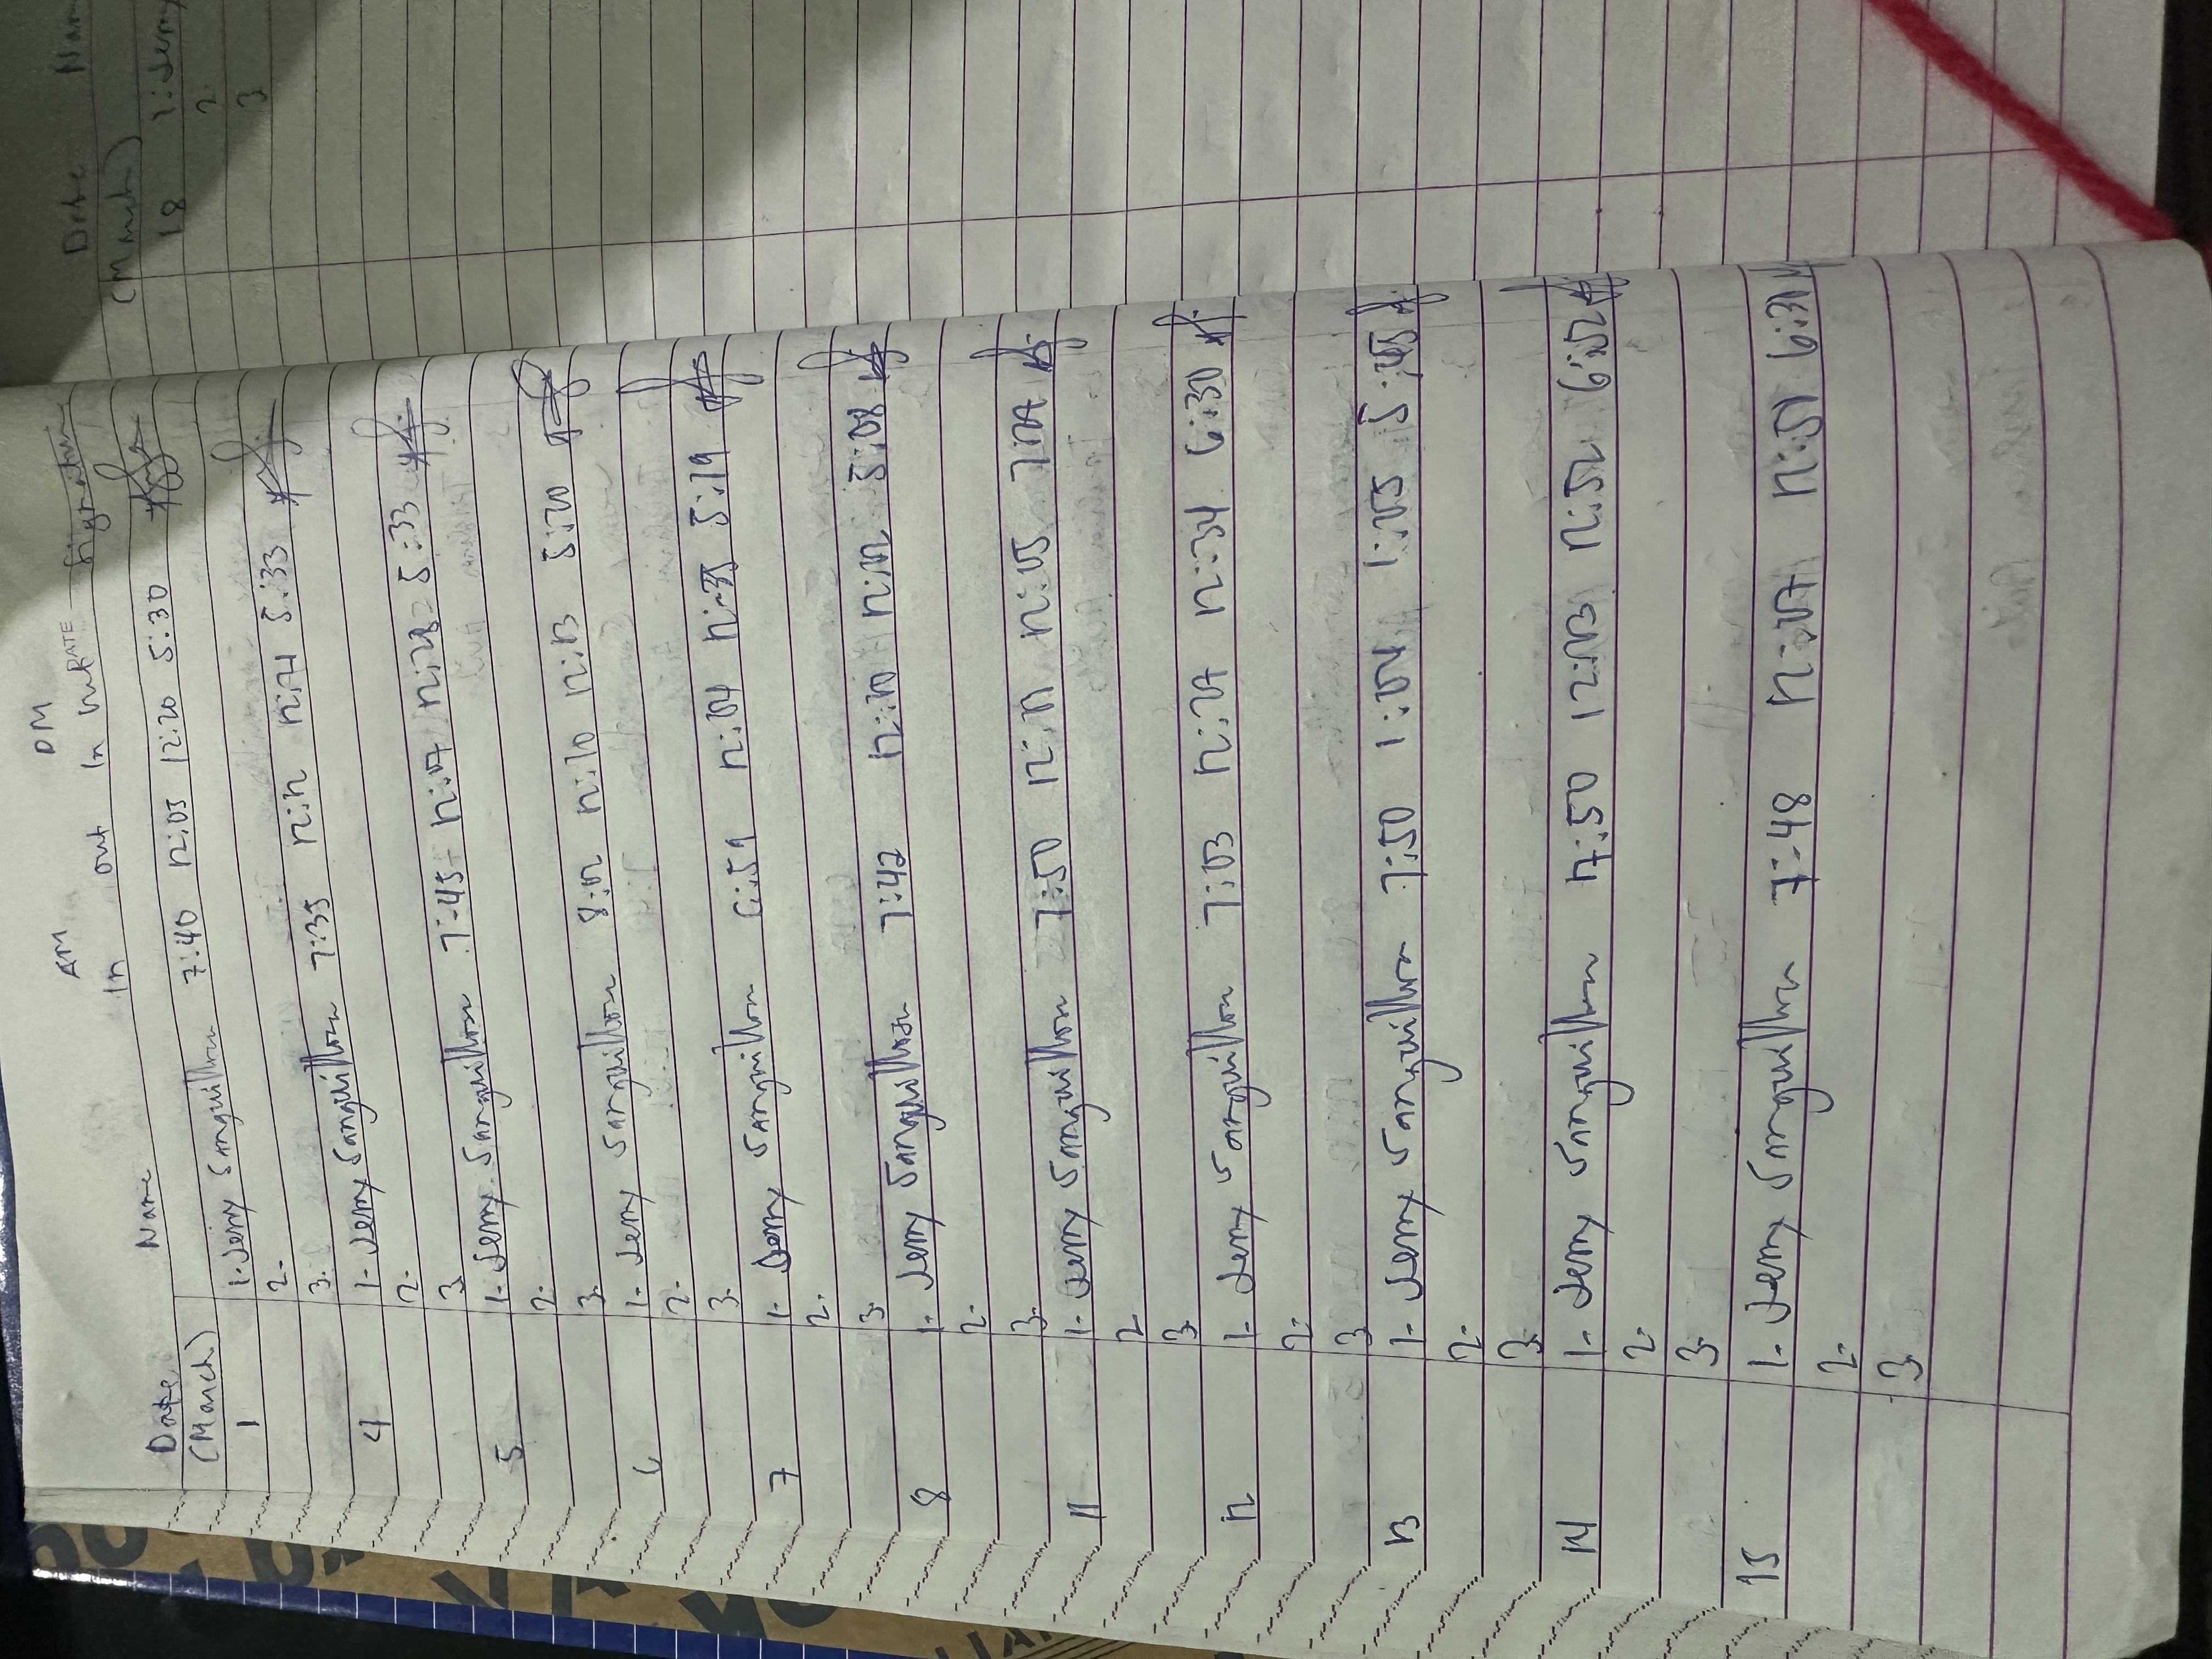 AM PM
Date Name In out In out RATE Signature
(March)
1 1. Jerry Sanguillon 7:40 12:05 12:20 5:30
2.
3.
4 1- Jerry Sanguillon 7:35 12:12 12:24 5:33
2-
3.
5 1- Jerry Sanguillon 7:45 12:17 12:28 5:33
2.
3.
6 1- Jerry Sanguillon 8:12 12:10 12:13 5:20
2.
3.
7 1- Jerry Sanguillon 6:59 12:04 12:35 5:19
2.
3.
8 1- Jerry Sanguillon 7:42 5:08
2-
3-
11 1- Jerry Sanguillon 7:50
2
3.
12 1- Jerry Sanguillon 7:03 12:27 12:34 6:30
2-
3
13 1- Jerry Sanguillon 7:50 1:04 1:05 5:45
2-
3.
14 1- Jerry Sanguillon 7:50 12:52 6:52
2-
3-
15 1- Jerry Sanguillon 7:48 12:51 6:31
2-
3.
Date Nam
(March)
18 1. Jerry
2.
3